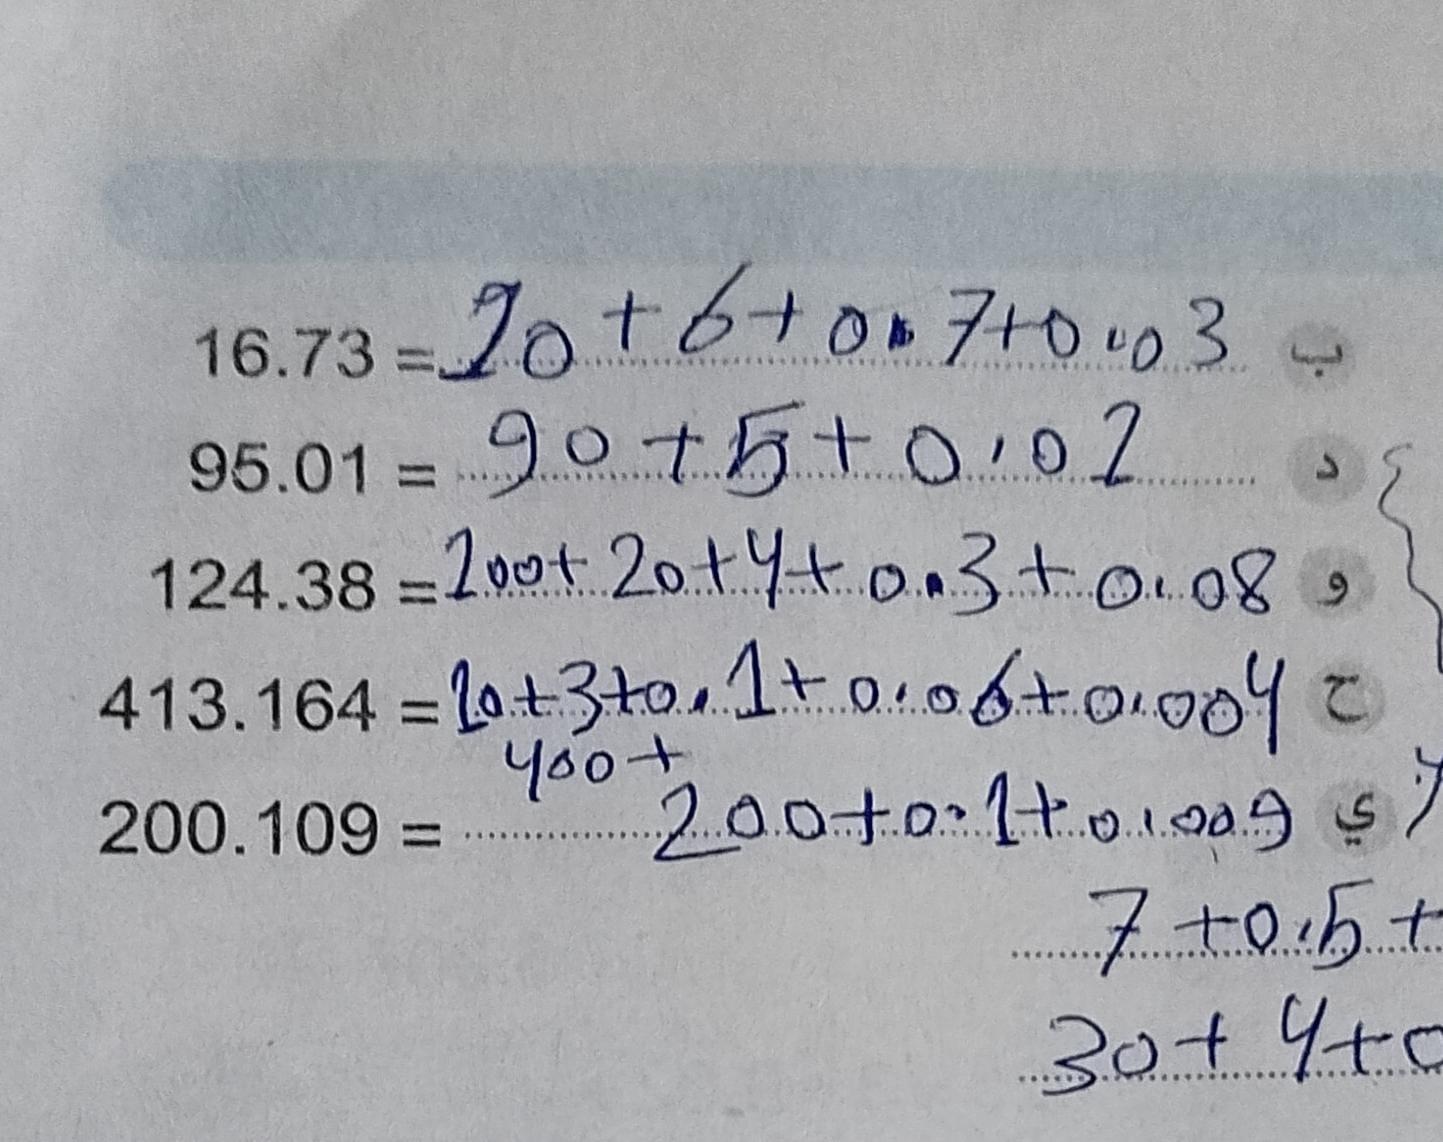 16.73 = 10 + 6 + 0.7 + 0.03 ب
95.01 = 90 + 5 + 0.01 د
124.38 = 100 + 20 + 4 + 0.3 + 0.08 و
413.164 = 10 + 3 + 0.1 + 0.06 + 0.004 ح
400 +
200.109 = 200 + 0.1 + 0.009 ي
7 + 0.5 +
30 + 4 + 0